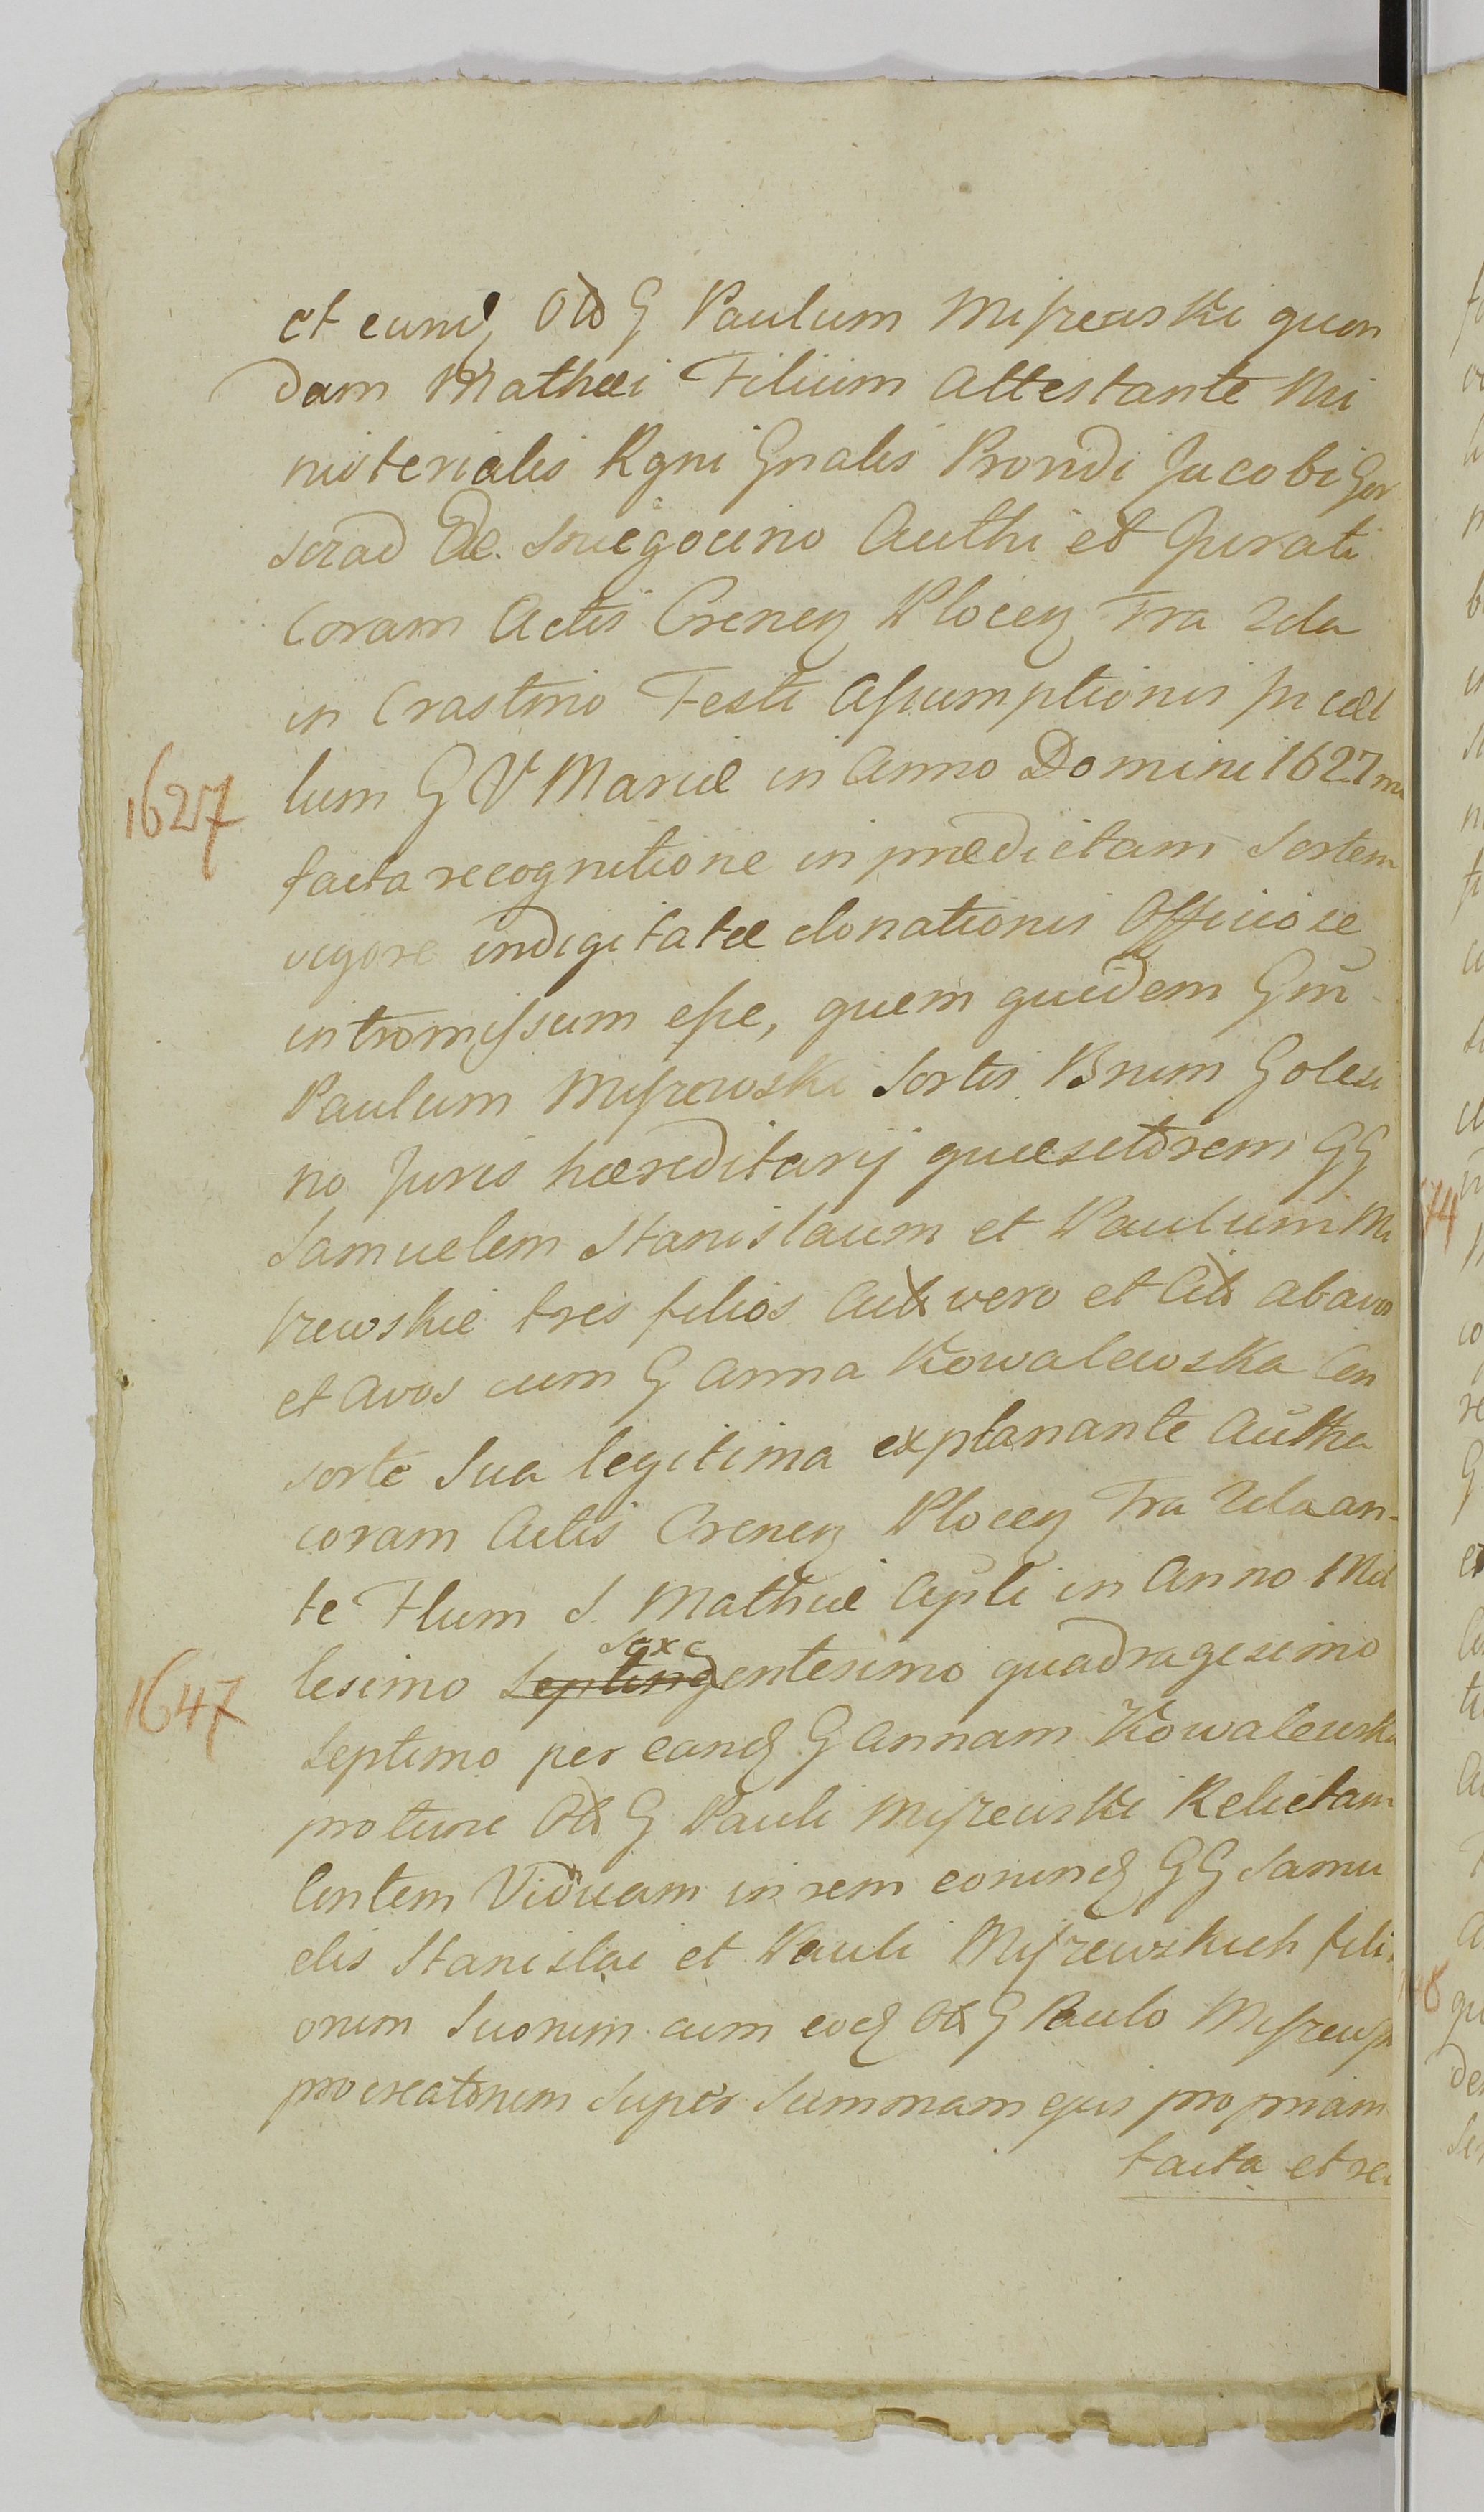 et eund Old G Paulum Miszewski quon
dam Mathei Filium attestante Mi
nisterialis Rgni Gnalis Providi Jacobi Gor
szad de Sniegocino Authi et Jurati
Coram Actis Crenen Plocen Fra 2da
in Crastino Festi Assumptionis in cael
lum G V Mariae in Anno Domini 1627mo
1627
facta recognitione in praedictam Sortem
vigore indigitatae donationis Officiose
intromissum esse, quem quidem Gm
Paulum Miszewski Sortis Bnum Golesi
no Juris haereditarij quaesitorem GG
Samuelem Stanislaum et Paulum Mi
szewskie tres filios vero et abavos
et avos cum G Anna Kowalewska Con
sorte Sua legitima explanante Autha
coram Actis Crenen Plocen Fra 2da an-
te Ftum S. Mathiae Apli in Anno Mil
lesimo Septing Sexcentesimo quadragesimo
1647
Septimo per eand G Annam Kowalewska
pro tunc Old G Pauli Miszewski Relictam
Viduam in rem eorund GG Samu
elis Stanislai et Pauli Miszewskich fili
orum Suorum cum eod Old G Paulo Miszewski
procreatorum Super Summam ejus propriam
facta et rec